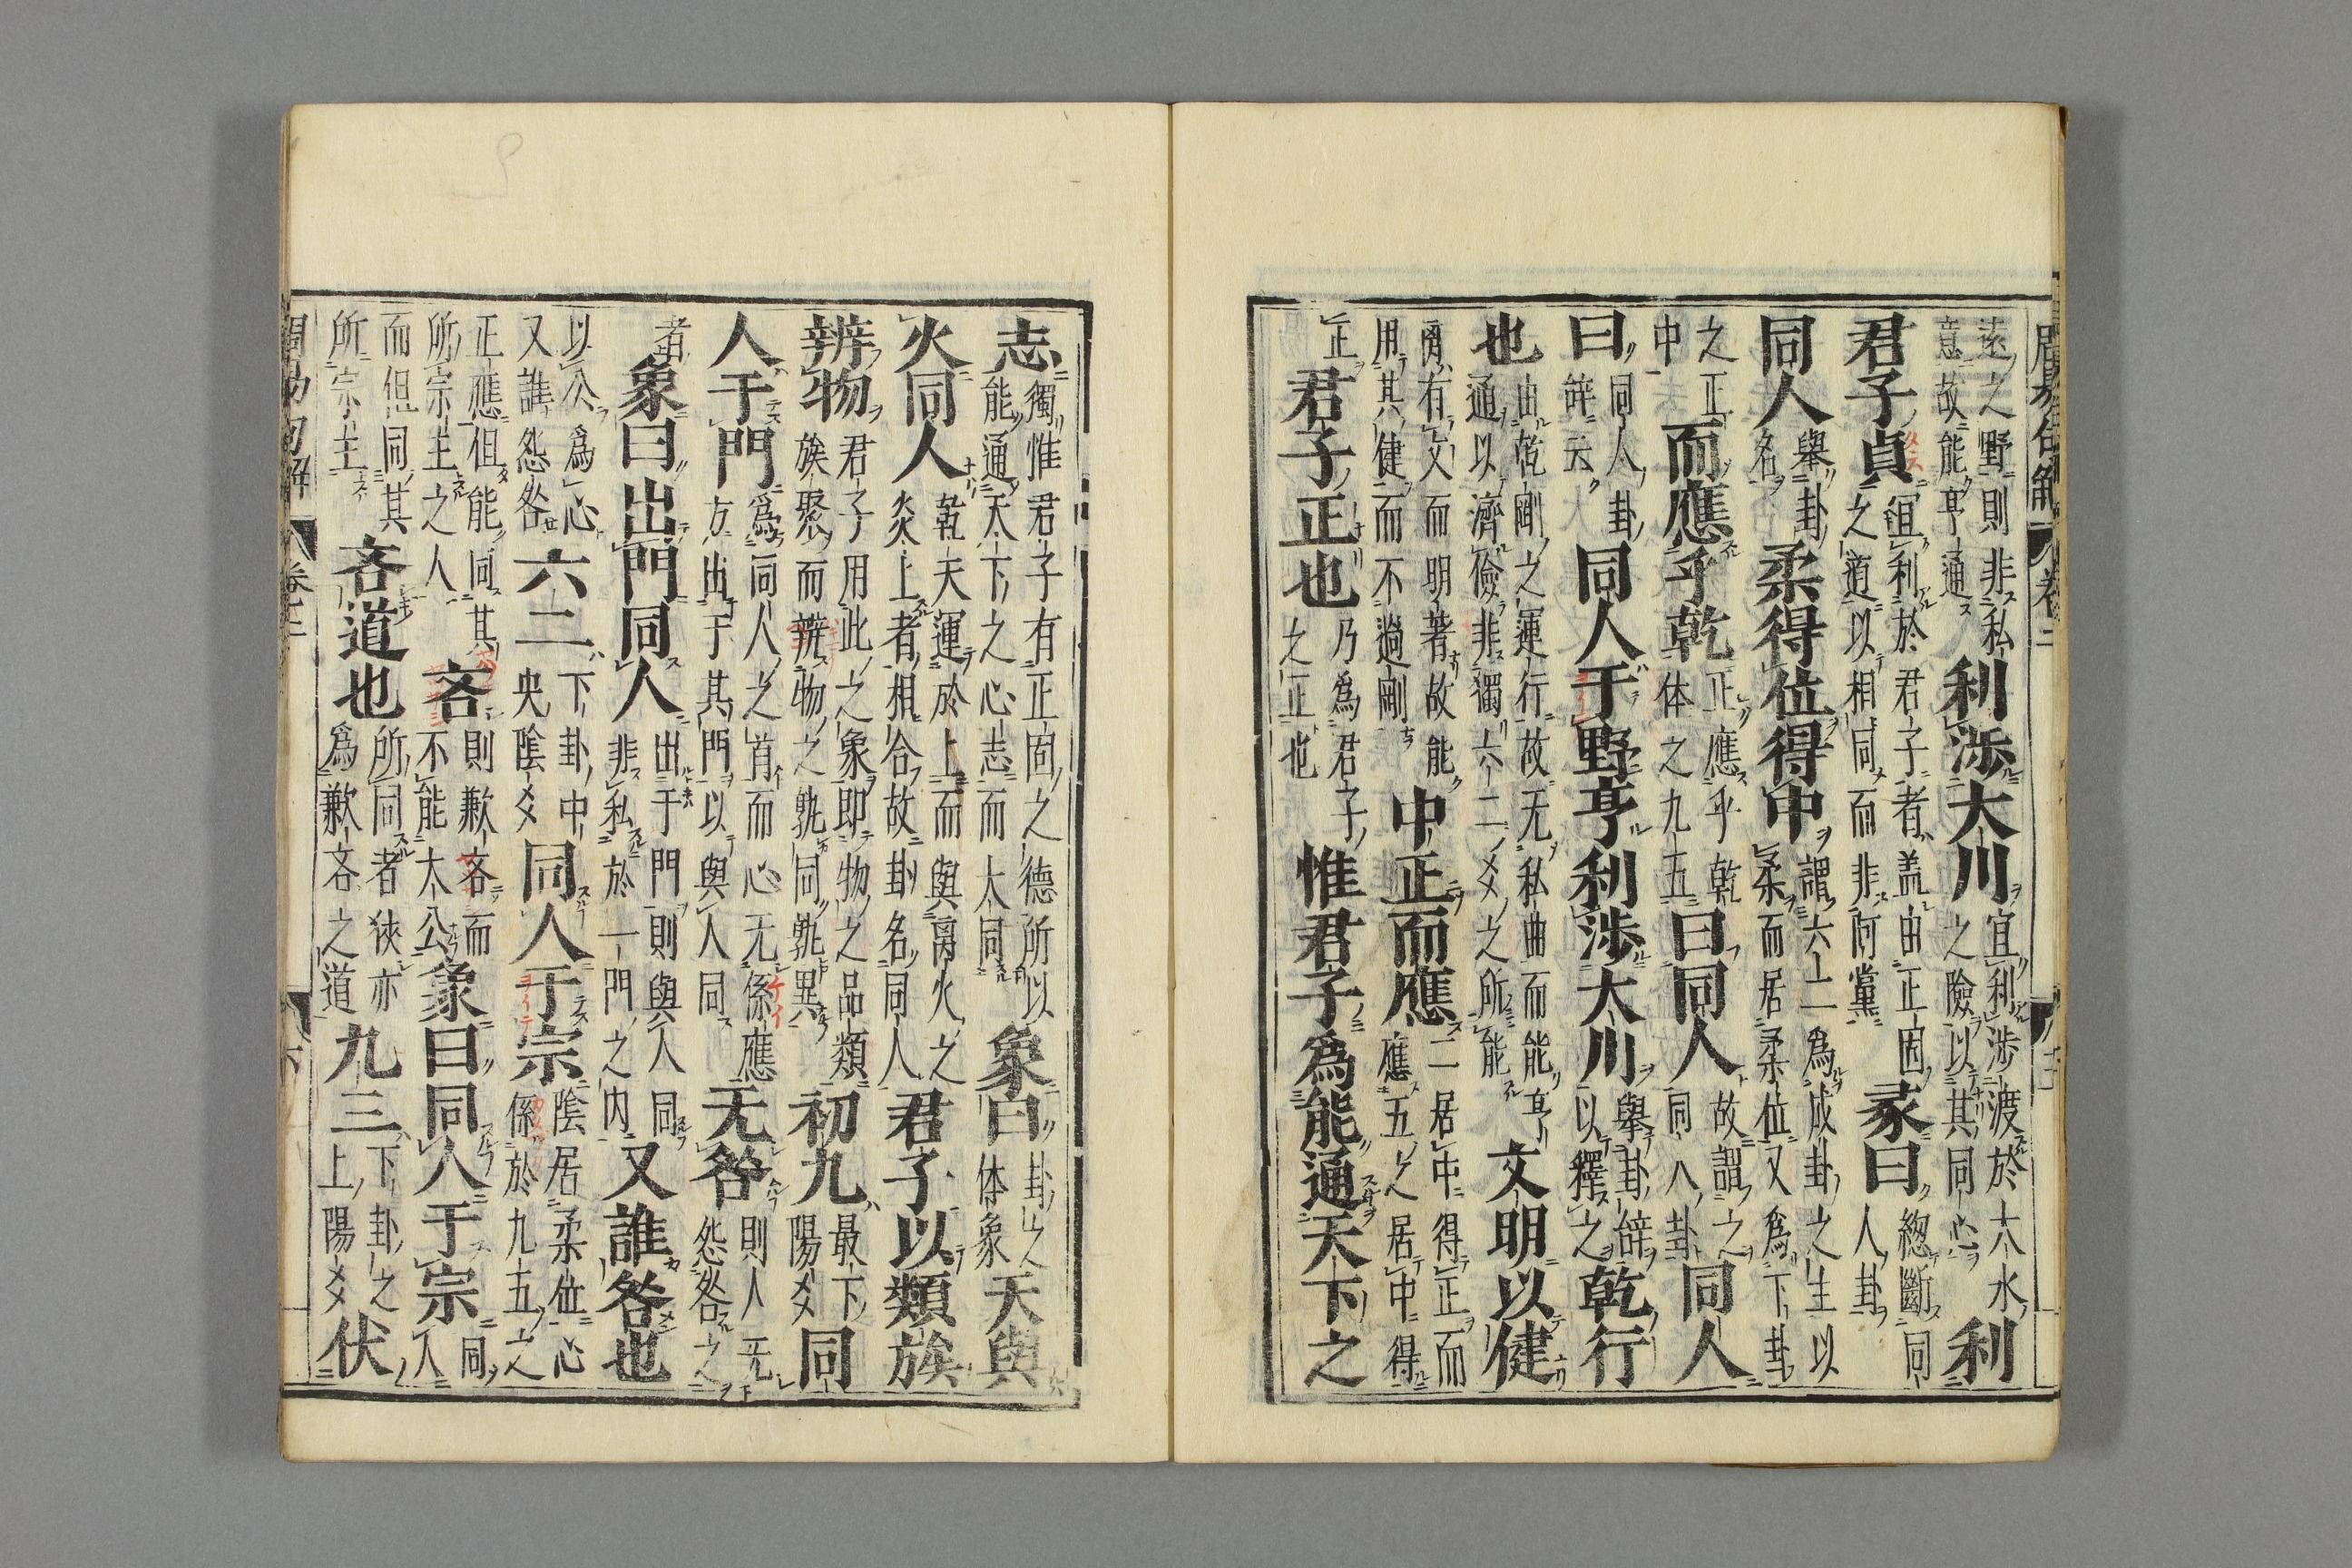 周易句解 卷二
遠之野則非私意故能亨通利渉大川宜利渉渡於大水之險以其同心利
君子貞冝利於君子者盖由正固之道以相同而非阿黨彖曰緫斷同人卦
同人舉卦名柔得位得中謂六二為成卦之主以柔而居柔位又為下卦
之正中而應乎乾正應乎乾体之九五曰同人故謂之同人卦同人
曰同人卦辭云同人于野亨利渉大川舉卦辭以釋之乾行
也由乾剛之運行故无私曲而能亨通以濟儉非獨六二爻之所能文明以健
离有文而明著故能用其健而不過剛中正而應二居中得正而應五之居中得
正君子正也乃為君子之正也惟君子為能通天下之
志獨惟君子有正固之德所以能通天下之心志而大同象曰卦之体象天與
火同人乾天運於上而與离火之炎上者相合故卦名同人君子以類族
辨物君子用此之象即物之品類族聚而辨物之孰同孰異初九最下陽爻同
人于門為同人之首而心无係應方出于其門以與人同无咎則人无怨咎之
者象曰出門同人出于門則與人同非私於一門之内又誰咎也
以公為心又誰怨咎六二下卦中央陰爻同人于宗陰居柔位心係於九五之
正應但能同其所宗主之人吝則歉吝而不能大公象曰同人于宗同人
而但同其所宗主吝道也所同者狹亦為歉吝之道九三下卦之上陽爻伏
周易句解 卷二